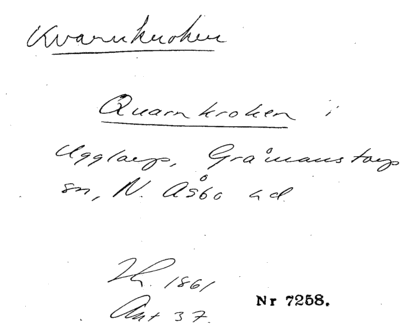 Kvarnkroken
Quarnkroken i
Ugglarp, Gråmanstorps
sn, N. Åsbo hd
Th. 1861
Akt 37.
Nr 7258.